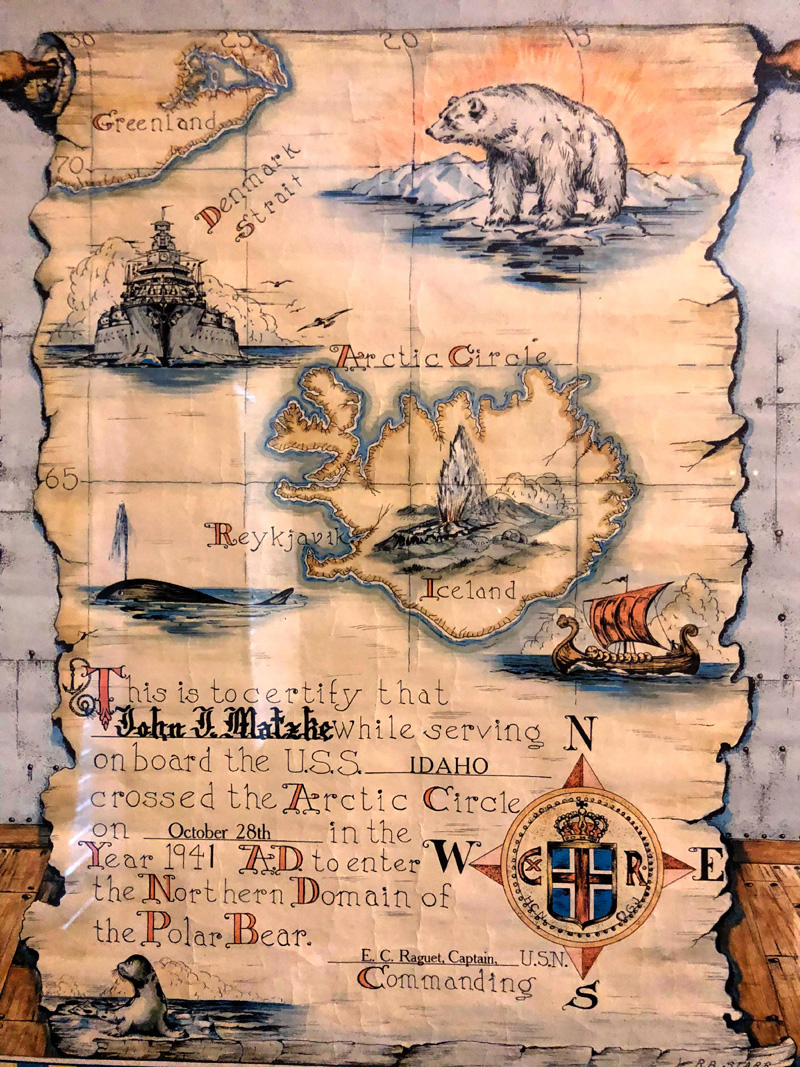 30 25 20 15
Greenland
70
Denmark
Strait
Arctic Circle
65
Reykjavik
Iceland
This is to certify that
John J. Matzke while serving
on board the U.S.S. IDAHO
crossed the Arctic Circle
on October 28th in the
Year 1941 AD to enter
the Northern Domain of
the Polar Bear.
E. C. Raguet, Captain, U.S.N.
Commanding
N
W
E
S
C R
R.B. STARR